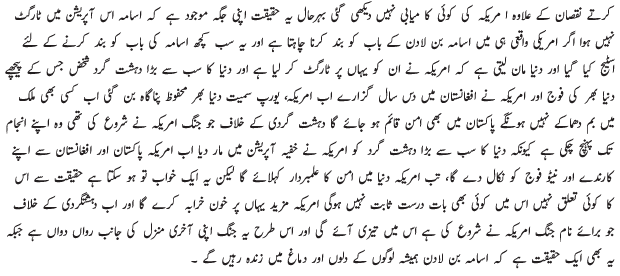 کرتے نقصان کے علاوہ امریکہ کی کوئی کامیابی نہیں دیکھی گئی بہرحال یہ حقیقت اپنی جگہ موجود ہے کہ اسامہ اس آپریشن میں ٹارگٹ
نہیں ہوا اگر امریکی واقعی ہی میں اسامہ بن لادن کے باب کو بند کرنا چاہتا ہے اور یہ سب کچھ اسامہ کی باب کو بند کرنے کے لئے
اسٹیج کیا گیا اور دنیا مان لیتی ہے کہ امریکہ نے ان کو یہاں پر ٹارگٹ کر لیا ہے اور دنیا کا سب سے بڑا دہشت گرد شخص جس کے پیچھے
دنیا بھر کی فوج اور امریکہ نے افغانستان میں دس سال گزارے اب امریکہ، یورپ سمیت دنیا بھر محفوظ پناگاہ بن گئی اب کسی بھی ملک
میں بم دھماکے نہیں ہونگے پاکستان میں بھی امن قائم ہو جائے گا دہشت گردی کے خلاف جو جنگ امریکہ نے شروع کی تھی وہ اپنے انجام
تک پہنچ چکی ہے کیونکہ دنیا کا سب سے بڑا دہشت گرد کو امریکہ نے خفیہ آپریشن میں مار دیا اب امریکہ پاکستان اور افغانستان سے اپنے
کارندے اور نیٹو فوج کو نکال دے گا، تب امریکہ دنیا میں امن کا علمبردار کہلائے گا لیکن یہ ایک خواب تو ہو سکتا ہے حقیقت سے اس
کا کوئی تعلق نہیں اس میں کوئی بھی بات درست ثابت نہیں ہوگی امریکہ مزید یہاں پر خون خرابہ کرے گا اور اب دہشتگردی کے خلاف
جو برائے نام جنگ امریکہ نے شروع کی ہے اس میں تیزی آئے گی اور اس طرح یہ جنگ اپنی آخری منزل کی جانب رواں دواں ہے جبکہ
یہ بھی ایک حقیقت ہے کہ اسامہ بن لادن ہمیشہ لوگوں کے دلوں اور دماغ میں زندہ رہیں گے ۔